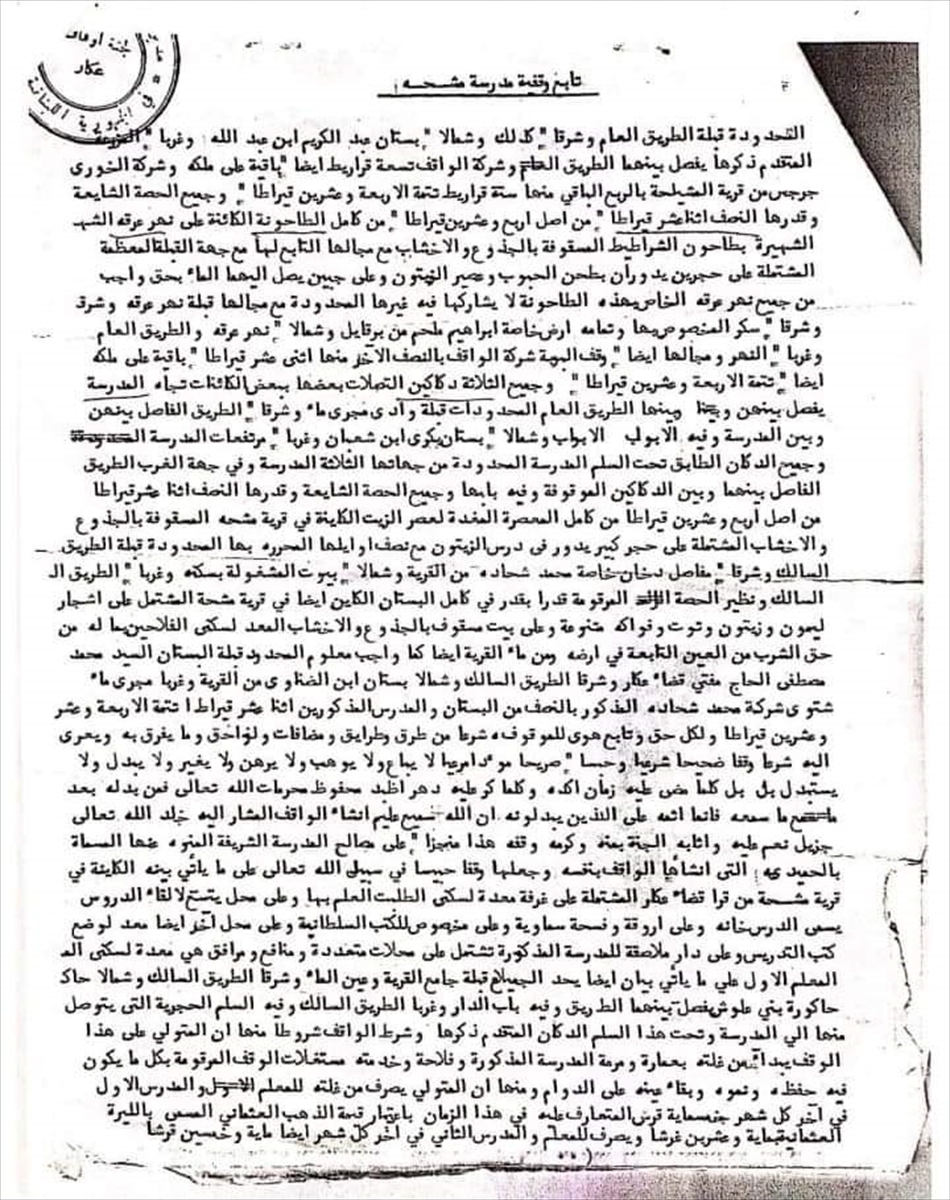 لجنة أوقاف
عكار
في الجمهورية اللبنانية
تابع وقفية مدرسة مشحه
المحدودة قبلة الطريق العام وشرقا" كذلك وشمالا" بستان عبد الكريم ابن عبد الله وغربا" المزرعة
المتقدم ذكرها يفصل بينهما الطريق العام وشركة الواقف تسعة قراريط ايضا" باقية على ملكه وشركة الخوري
جرجس من قرية الشيلحة بالربع الباقي منها ستة قراريط تتمة الاربعة وعشرين قيراطا" وجميع الحصة الشايعة
وقدرها النصف اثنا عشر قيراطا" من اصل اربع وعشرين قيراطا" من كامل الطاحونة الكائنة على نهر عرقه الشهـ
الشهيرة بطاحون الشراطيط المسقوفة بالجذوع والاخشاب مع مجالها التابع لها مع جهة القبلة المعظمة
المشتملة على حجرين يدوران بطحن الحبوب وعصير الزيتون وعلى جبين يصل اليهما الماء بحق واجب
من جميع نهر عرقه الخاص بهذه الطاحونة لا يشاركها فيه غيرها المحدودة مع مجالها قبلة نهر عرقه وشرق
وشرقا" سكر المنصوص بها وتمامه ارض خاصة ابراهيم ملحم من برقايل وشمالا" نهر عرقه والطريق العام
وغربا" النهر ومجالها ايضا" وقف البهة شركة الواقف بالنصف الآخر منها اثنى عشر قيراطا" باقية على ملكه
ايضا" تتمة الاربعة وعشرين قيراطا" وجميع الثلاثة دكاكين المتصلات بعضها ببعض الكائنات تجاه المدرسة
يفصل بينهن وبينها الطريق العام المحدودات قبلة وادى مجرى ماء وشرقا" الطريق الفاصل بينهن
وبين المدرسة وفيه الابواب الابواب وشمالا" بستان بكرى ابن شعبان وغربا" مرتفعات المدرسة
وجميع الدكان الطابق تحت السلم المدرسة المحدودة من جهاتها الثلاثة المدرسة وفي جهة الغرب الطريق
الفاصل بينهما وبين الدكاكين الموقوفة وفيه بابها وجميع الحصة الشايعة وقدرها النصف اثنا عشر قيراطا
من اصل اربع وعشرين قيراطا من كامل المعصرة المعدة لعصر الزيت الكاينة في قرية مشحه المسقوفة بالجذوع
والاخشاب المشتملة على حجر كبير يدور في درس الزيتون مع نصف اوايلها المحرره بها المحدودة قبلة الطريق
السالك وشرقا" مفاصل دخان خاصة محمد شحاده من القرية وشمالا" بيوت المشغولة بسكنه وغربا" الطريق الـ
السالك ونظير الحصة المرقومة قدرا بقدر في كامل البستان الكاين ايضا في قرية مشحة المشتمل على اشجار
ليمون وزيتون وتوت وفواكه متنوعة وعلى بيت مسقوف بالجذوع والاخشاب المعد لسكنى الفلاحين بما له من
حق الشرب من العين التابعة في ارضه ومن ماء القرية ايضا كما واجب معلوم المحدود قبلة البستان السيد محمد
مصطفى الحاج مفتي قضاء عكار وشرقا الطريق السالك وشمالا بستان ابن الضناوى من القرية وغربا مجرى ماء
شتوى شركة محمد شحاده المذكور بالنصف من البستان والمدرس المذكورين اثنا عشر قيراط ا تتمة الاربعة وعشر
وعشرين قيراطا ولكل حق وتابع هوى للموقوف شرعا من طرق وطرايق ومضافات ولواحق وما يفرق به ويعرى
اليه شرعا وقفا صحيحا شرعيا وحسا" صريحا مرعيا لا يباع ولا يوهب ولا يرهن ولا يغير ولا يبدل ولا
يستبدل بل بل كلما مضى عليه زمان اكده وكلما كر عليه دهر محفوظ محرمات الله تعالى فمن بدله بعد
ما سمعه فانما اثمه على الذين يبدلونه ان الله سميع عليم انشاء الواقف المشار اليه خلد الله تعالى
جزيل نعم عليه واثابه الجنة بمنه وكرمه وقفه هذا منجزا" على مصالح المدرسة الشريفة المنوه عنها المسماة
بالحميديه التى انشأها الواقف بنفسه وجعلها وقفا حبيسا في سبيل الله تعالى على ما يأتي بينه الكاينة في
قرية مشحة من قرا قضاء عكار المشتملة على غرفة معدة لسكنى الطلبت العلم بها وعلى محل يتسع لالقاء الدروس
يسمى الدرس خانه وعلى اروقة وفسحة سماوية وعلى مخصوص للكتب السلطانية وعلى محل آخر ايضا معد لوضع
كتب التدريس وعلى دار ملاصقة للمدرسة المذكورة تشتمل على محلات متعددة ومنافع ومرافق هي معدة لسكنى الم
المعلم الاول على ما يأتي بيان ايضا يحد الجميع قبلة جامع القرية وعين الماء وشرقا الطريق السالك وشمالا حاك
حاكورة بني علوش فصل بينهما الطريق وفيه باب الدار وغربا الطريق السالك وفيه السلم الحجرية التى يتوصل
منها الى المدرسة وتحت هذا السلم الدكان المتقدم ذكرها وشرط الواقف شروطا منها ان المتولي على هذا
الوقف يبدأ من غلته بعمارة ومرمة المدرسة المذكورة وفلاحة وخدمته مستغلات الوقف المرقومة بكل ما يكون
فيه حفظه ونموه وبقاء عينه على الدوام ومنها ان المتولي يصرف من غلته للمعلم الاول والمدرس الاول
في آخر كل شهر خمسماية قرش المتعارف عليه في هذا الزمان باعتبار قيمة الذهب العثماني المسمى بالليرة
العثمانية بماية وعشرين غرشا ويصرف للمعلم والمدرس الثاني في آخر كل شهر ايضا ماية وخمسين قرشا